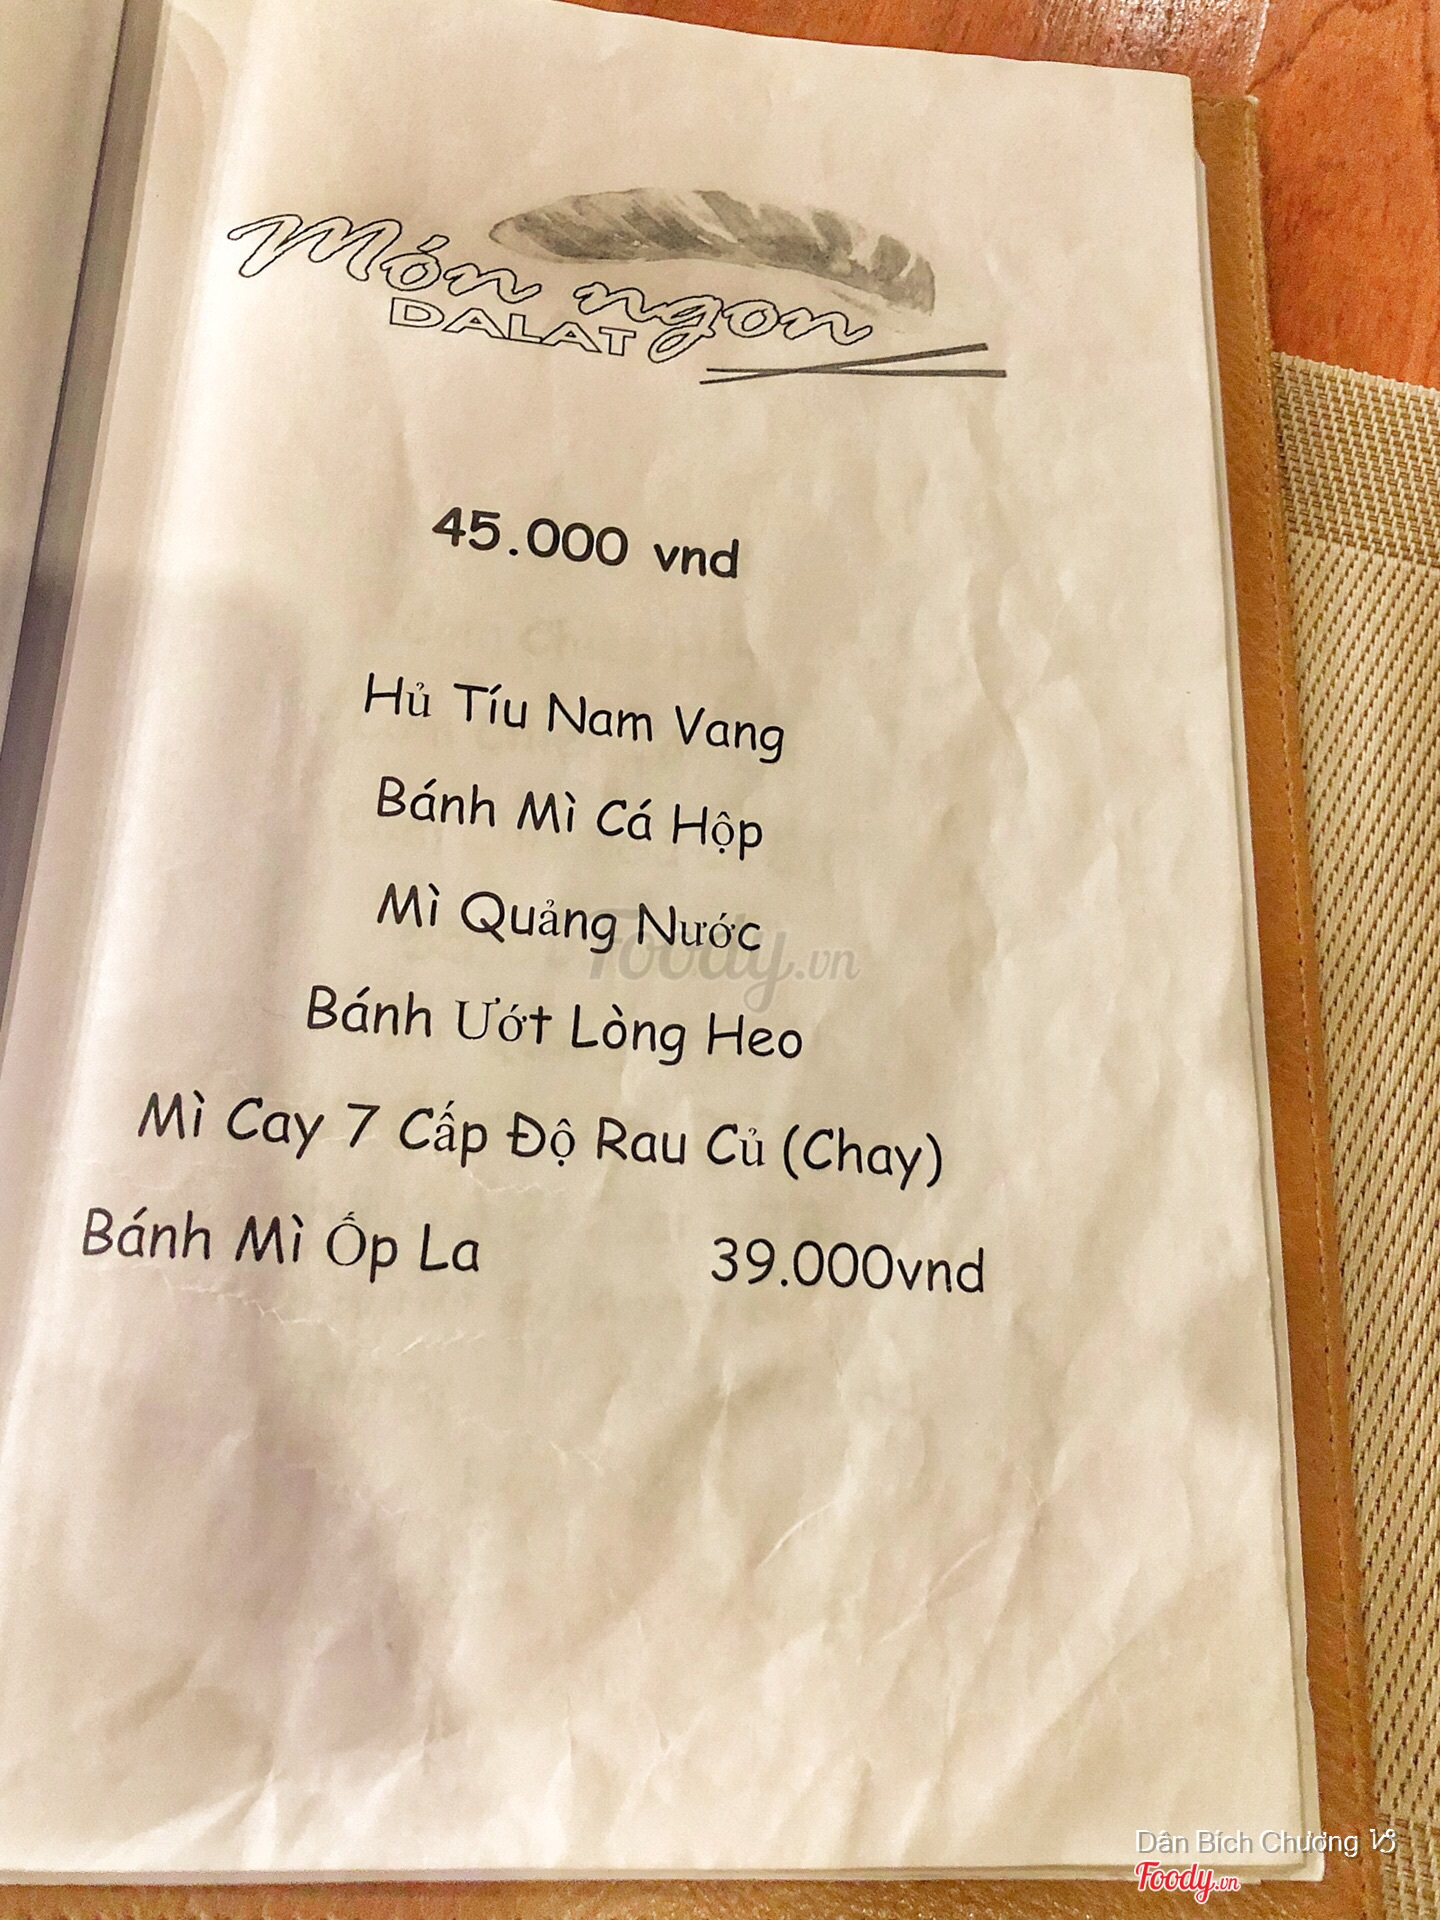 Món ngon
DALAT
45.000 vnd
Hủ Tíu Nam Vang
Bánh Mì Cá Hộp
Mì Quảng Nước
Foody.vn
Bánh Ướt Lòng Heo
Mì Cay 7 Cấp Độ Rau Củ (Chay)
Bánh Mì Ốp La 39.000vnd
Dân Bích Chương
Foody.vn